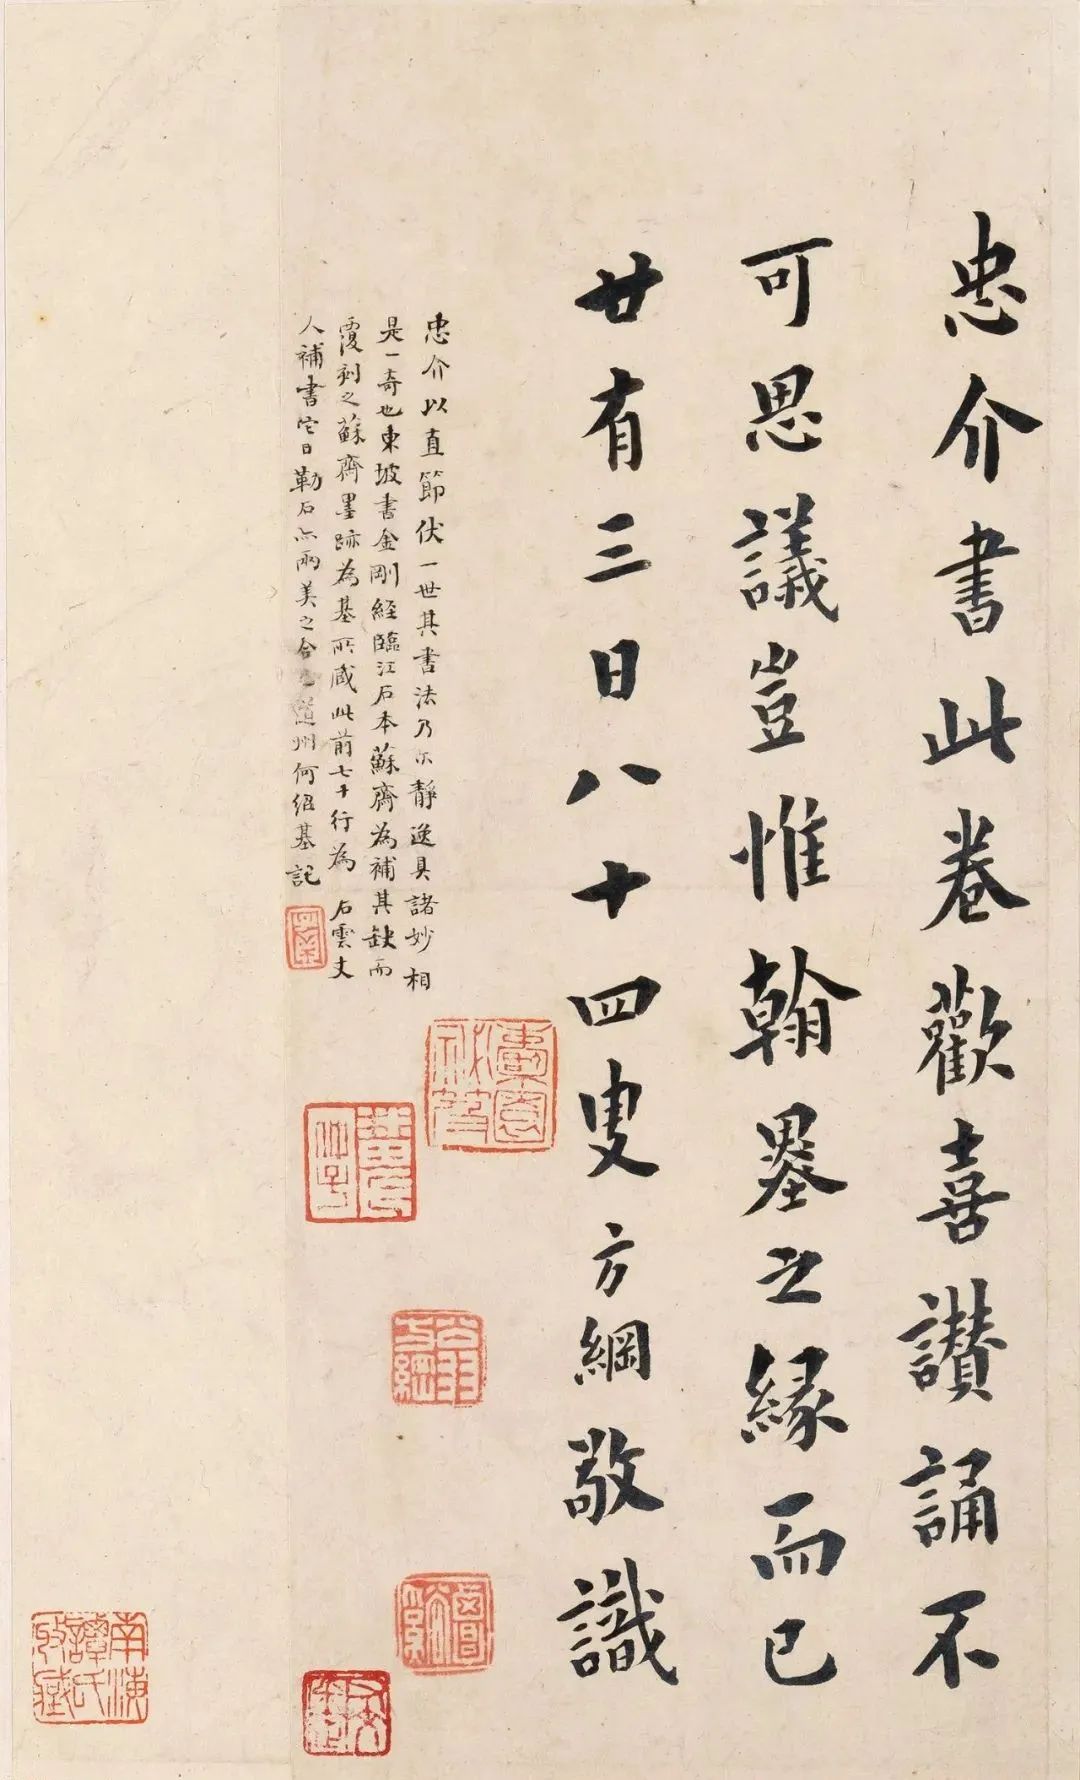 忠介書此卷歡喜讃誦不
可思議豈惟翰墨之緣而已
廿有三日八十四叟方綱敬識
忠介以直節伏一世其書法乃尔靜逸具諸妙相
是一奇也東坡書金剛經臨江石本蘇齋為補其缺而
覆刻之蘇齋墨跡為基所藏此前七十行為石雲丈
人補書它日勒石亦兩美之合也道州何紹基記
翁方綱
南海譚氏收藏